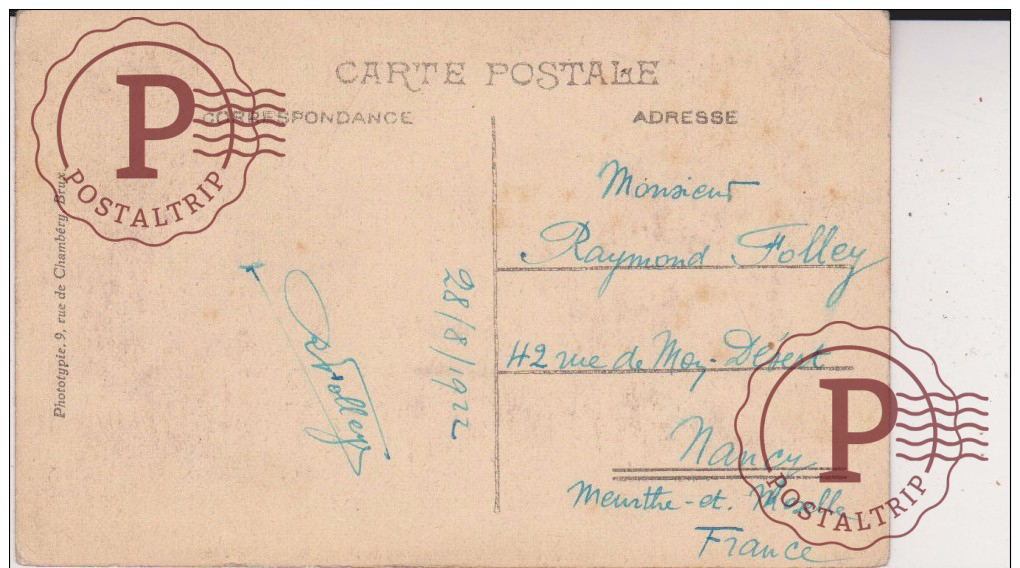 CARTE POSTALE
CORRESPONDANCE
ADRESSE
Monsieur
Raymond Folley
42 rue de
Nancy
Meurthe-et. Moselle
France
28/8/1922
Folley
Phototypie, 9, rue de Chambéry, Brux.
P
POSTALTRIP
P
POSTALTRIP